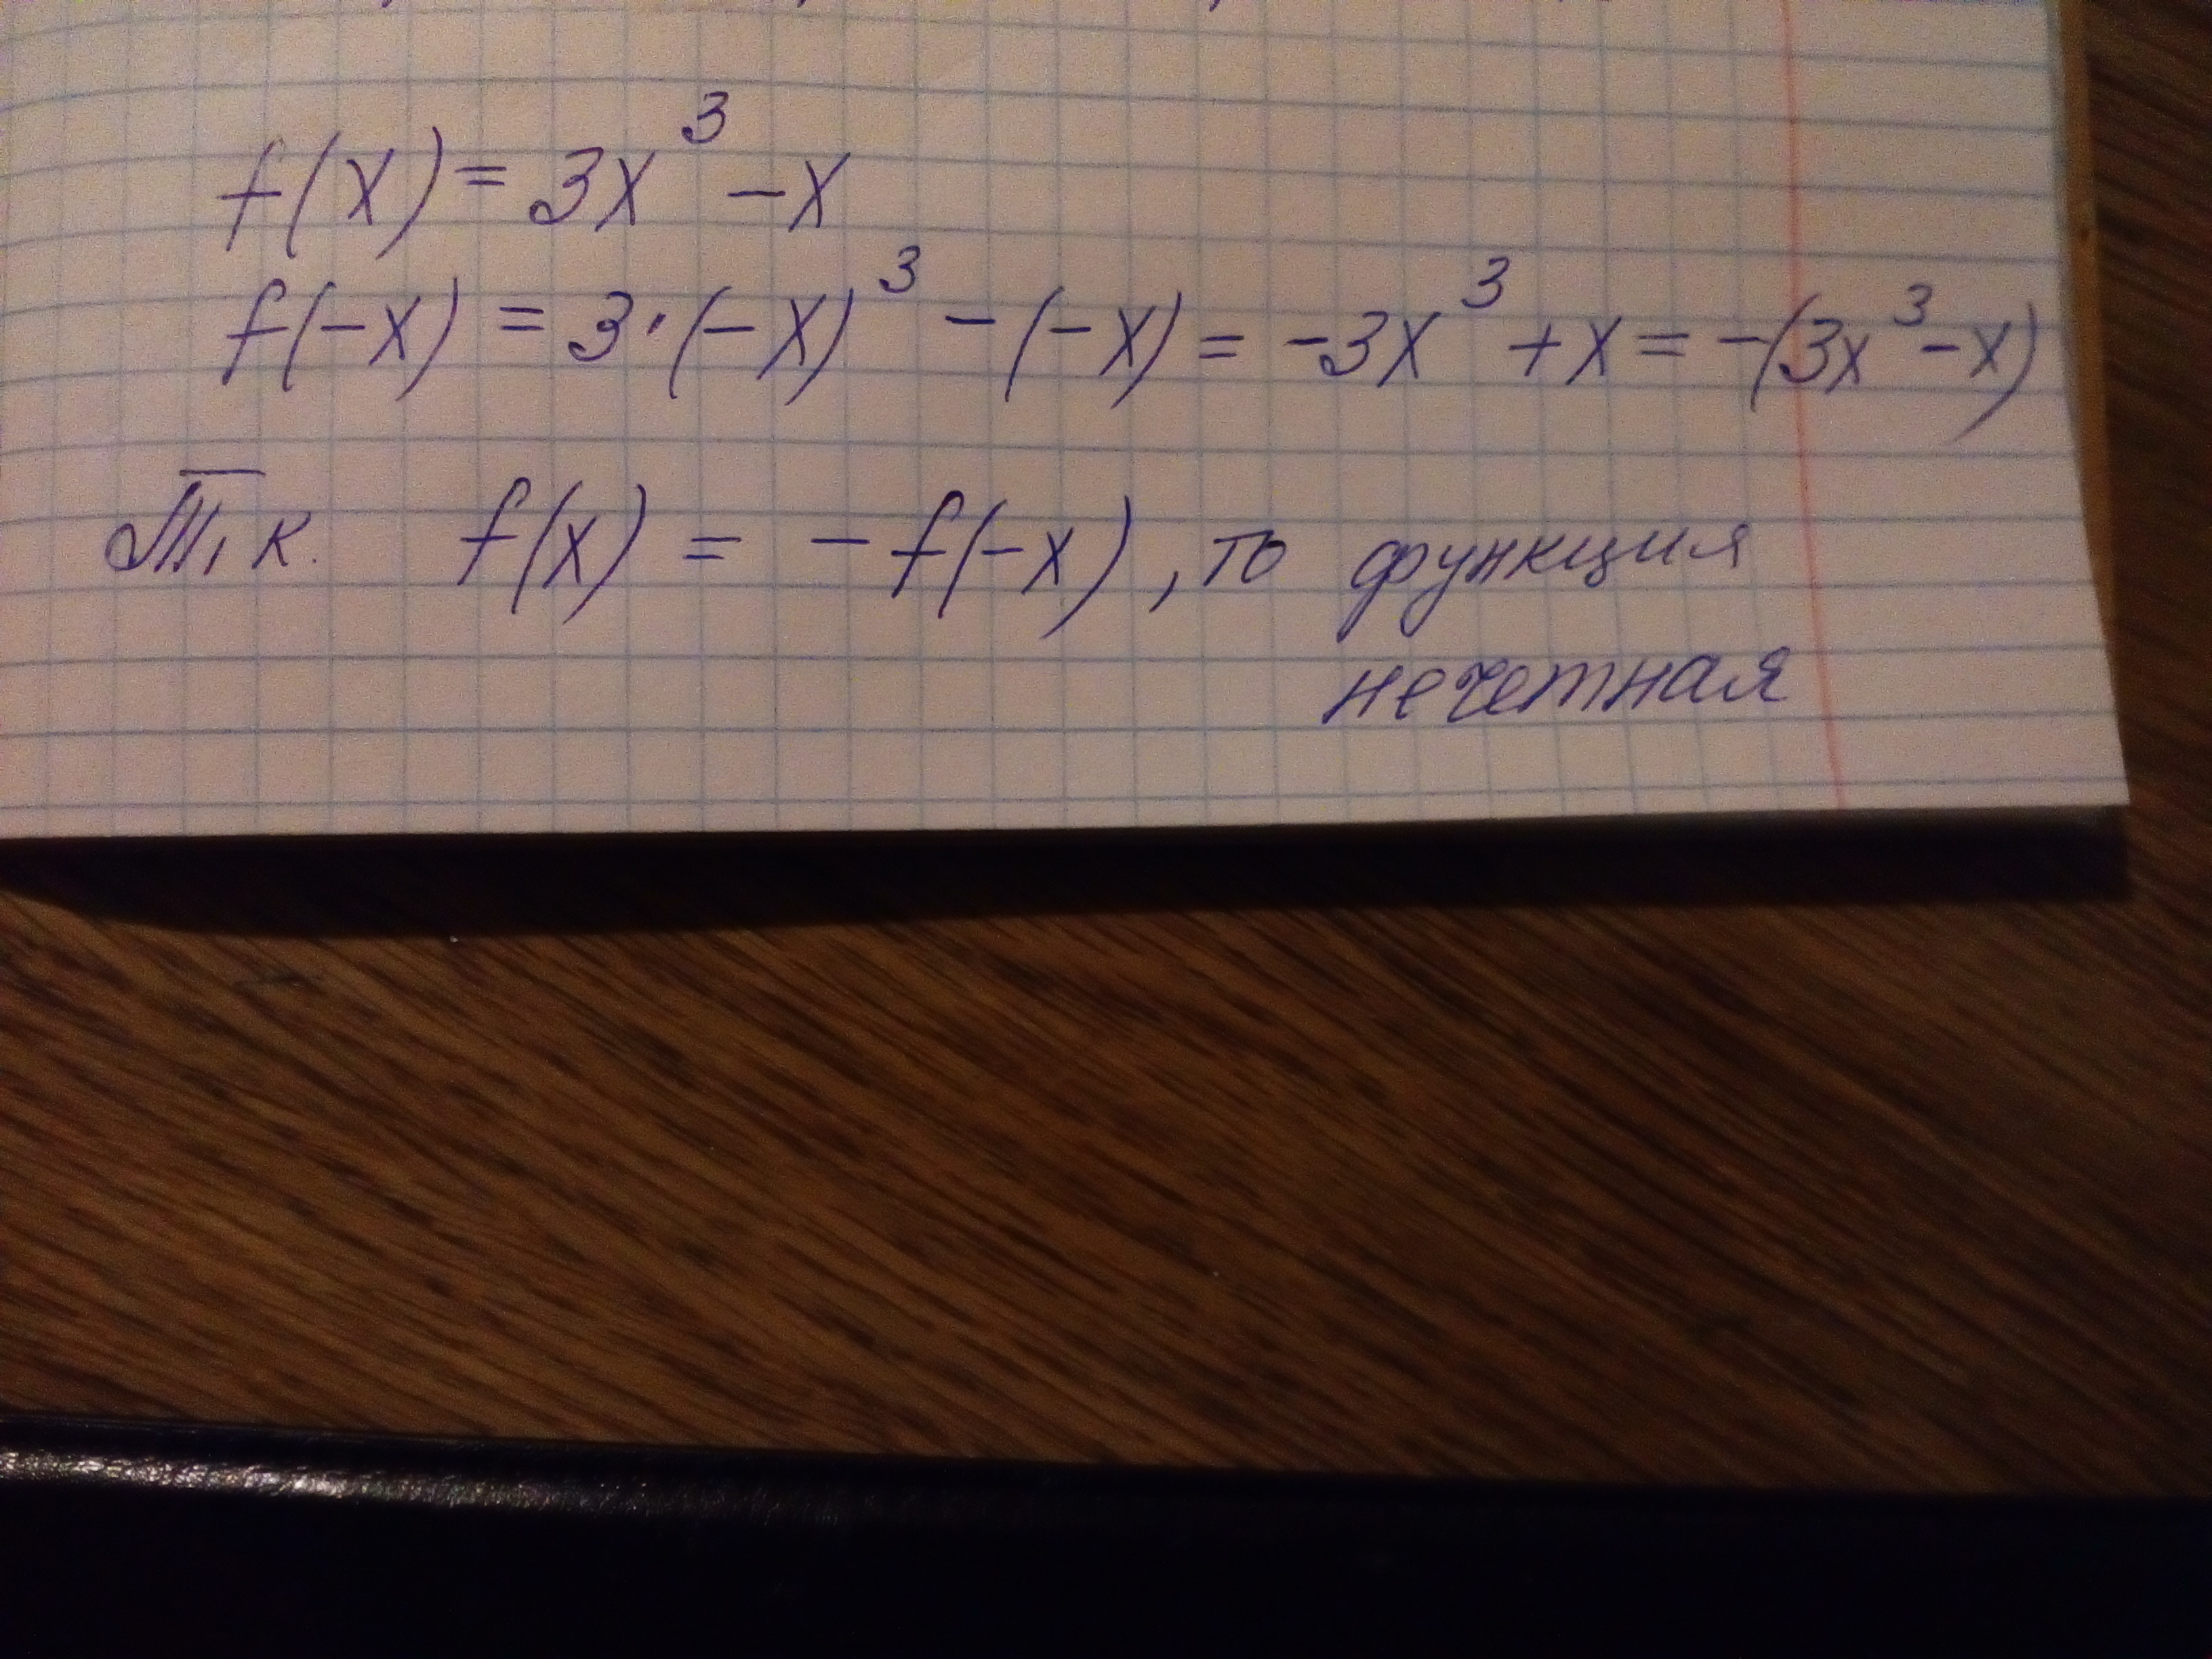 f(x) = 3x³ - x
f(-x) = 3·(-x)³ - (-x) = -3x³ + x = -(3x³ - x)
Т.к. f(x) = -f(-x), то функция
нечетная